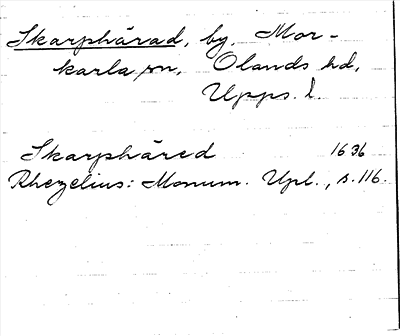 Skarphärad, by. Mor-
karla sn, Olands hd,
Upps. l.
Skarphäred 1636
Rhezelius: Monum. Upl., s. 116.